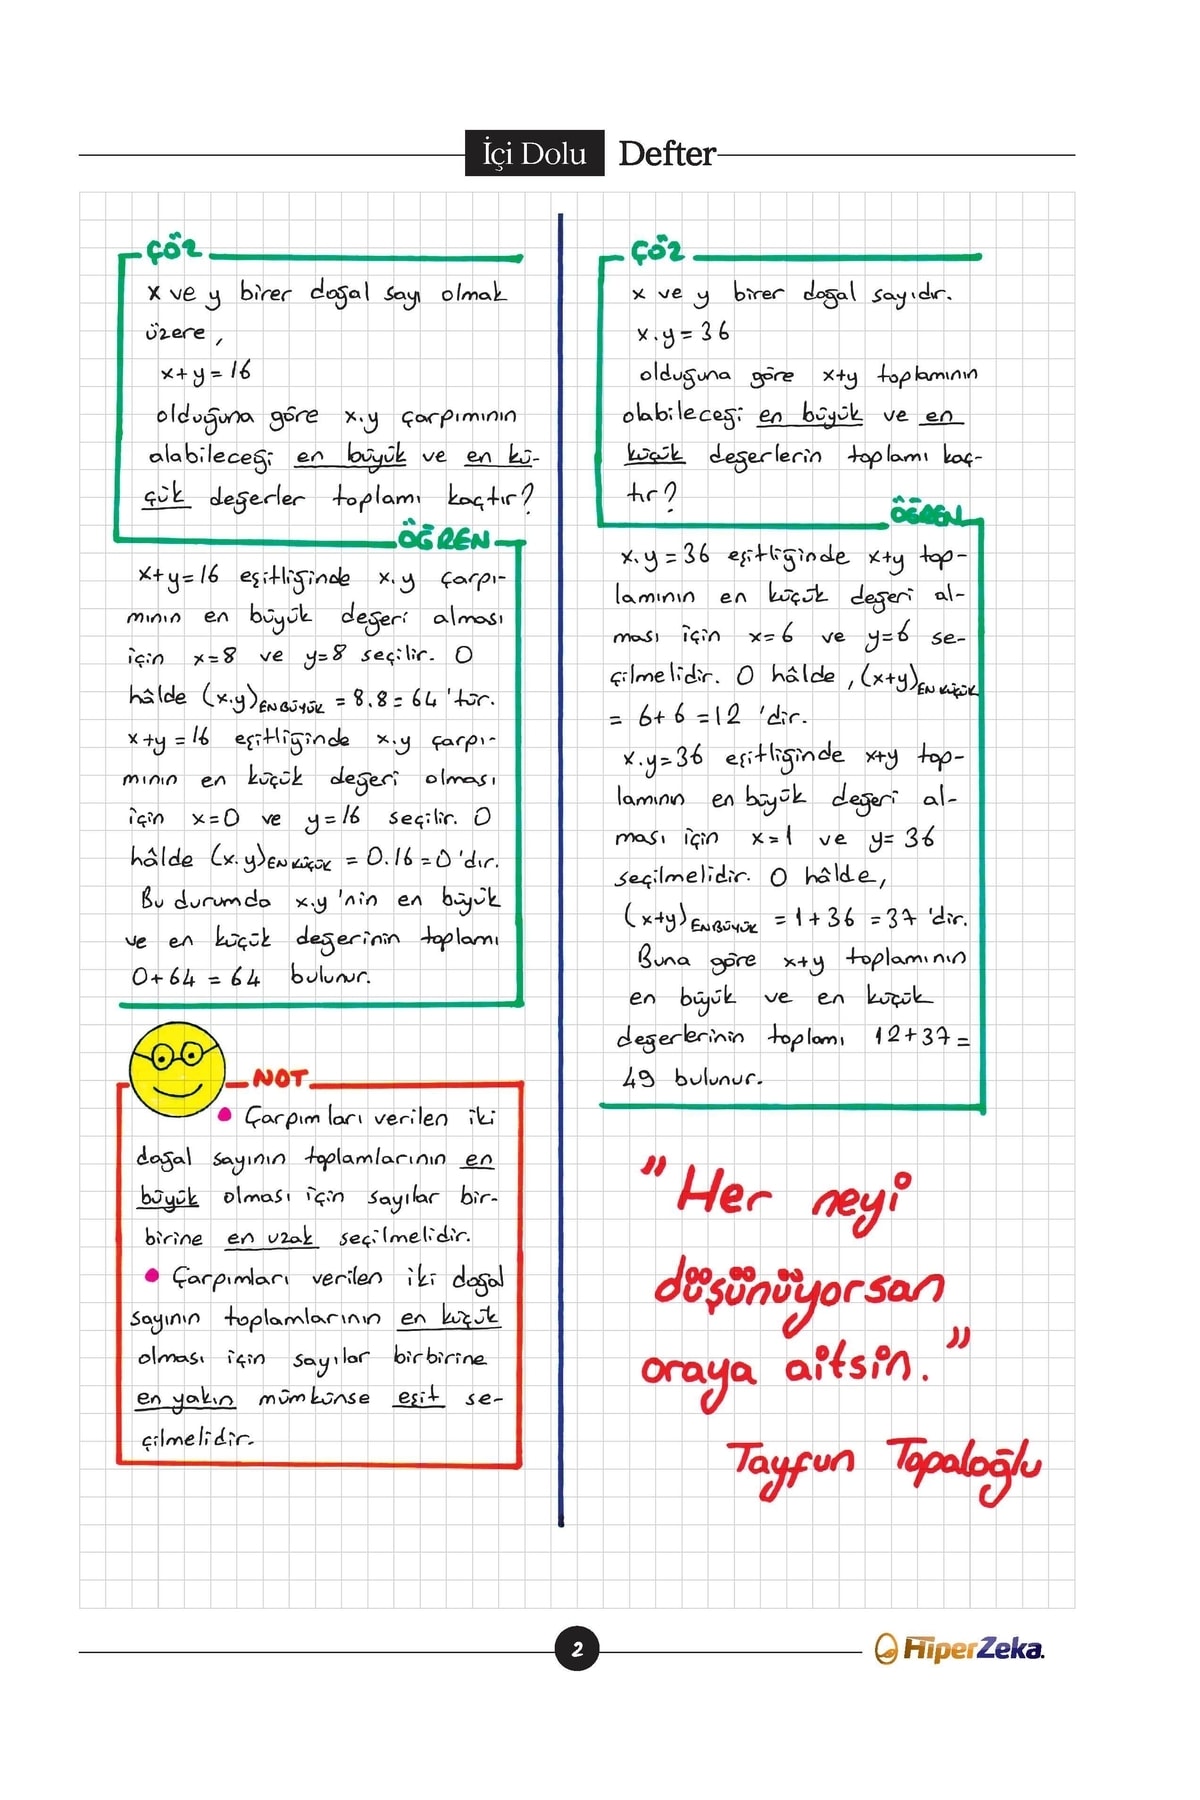 İçi Dolu Defter
ÇÖZ
x ve y birer doğal sayı olmak
üzere,
x+y=16
olduğuna göre x.y çarpımının
alabileceği en büyük ve en kü-
çük değerler toplamı kaçtır?
ÖĞREN
x+y=16 eşitliğinde x.y çarpı-
mının en büyük değeri alması
için x=8 ve y=8 seçilir. O
hâlde (x.y)EN BÜYÜK = 8.8=64 'tür.
x+y=16 eşitliğinde x.y çarpı-
mının en küçük değeri olması
için x=0 ve y=16 seçilir. O
hâlde (x.y)EN KÜÇÜK = 0.16=0'dır.
Bu durumda x.y 'nin en büyük
ve en küçük değerinin toplamı
0+64 = 64 bulunur.
NOT
• Çarpımları verilen iki
doğal sayının toplamlarının en
büyük olması için sayılar bir-
birine en uzak seçilmelidir.
• Çarpımları verilen iki doğal
sayının toplamlarının en küçük
olması için sayılar birbirine
en yakın mümkünse eşit se-
çilmelidir.
ÇÖZ
x ve y birer doğal sayıdır.
x.y=36
olduğuna göre x+y toplamının
olabileceği en büyük ve en
küçük değerlerin toplamı kaç-
tır?
ÖĞREN
x.y=36 eşitliğinde x+y top-
lamının en küçük değeri al-
ması için x=6 ve y=6 se-
çilmelidir. O hâlde, (x+y)EN KÜÇÜK
= 6+6=12 'dir.
x.y=36 eşitliğinde x+y top-
lamının en büyük değeri al-
ması için x=1 ve y=36
seçilmelidir. O hâlde,
(x+y)EN BÜYÜK = 1+36 =37 'dir.
Buna göre x+y toplamının
en büyük ve en küçük
değerlerinin toplamı 12+37=
49 bulunur.
"Her neyi
düşünüyorsan
oraya aitsin."
Tayfun Topaloğlu
2
HiperZeka.